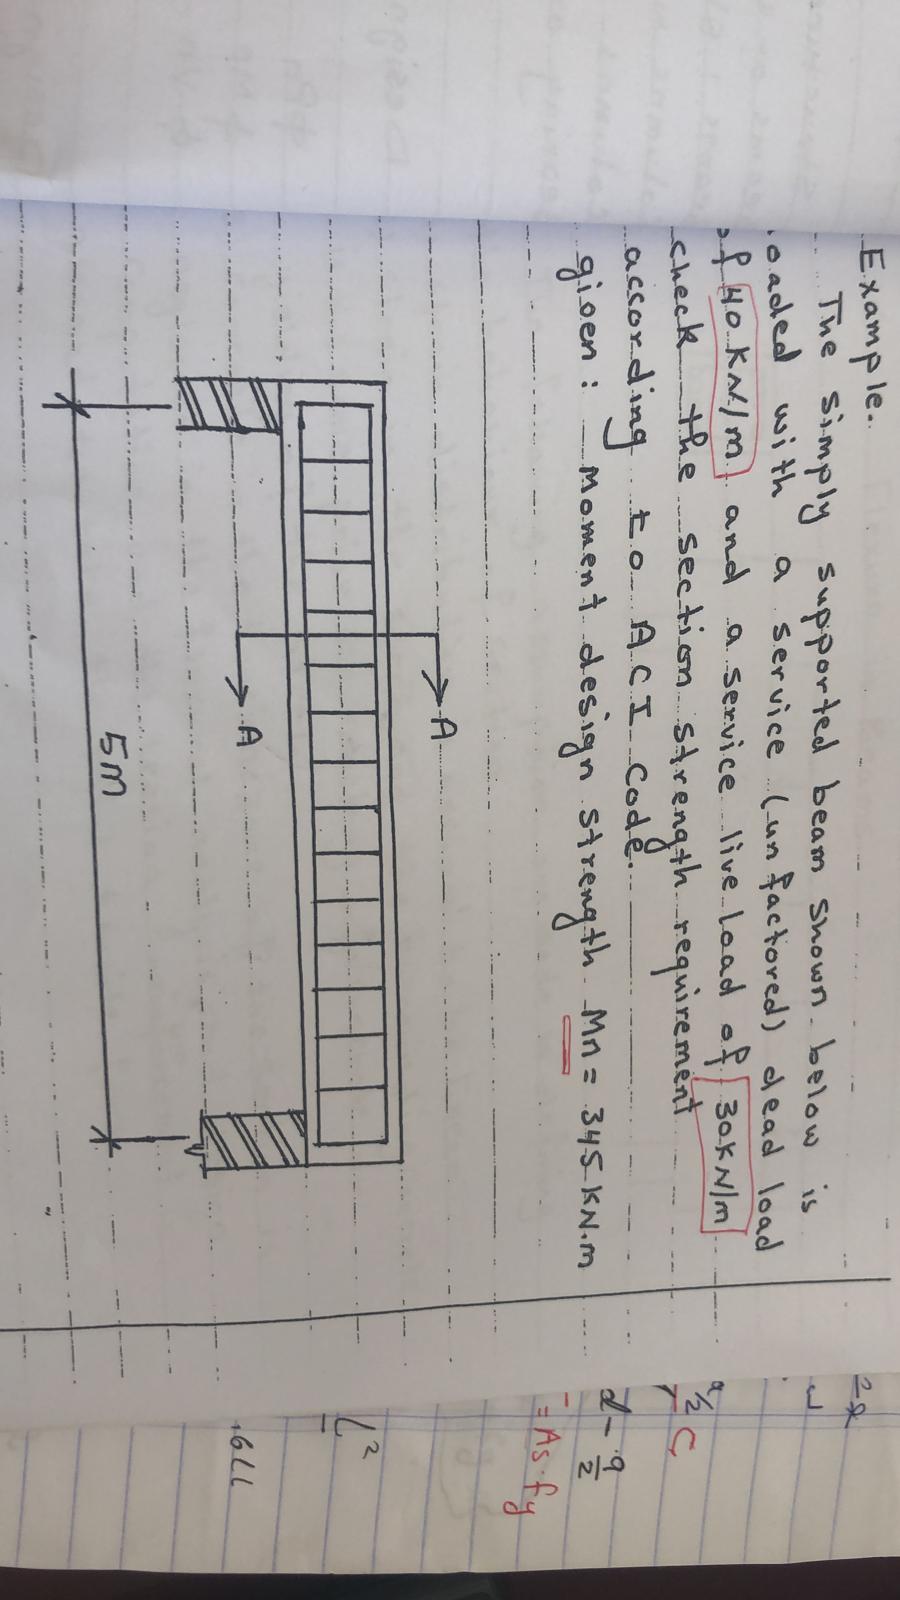 Example.
The simply supported beam shown below is
loaded with a service (unfactored) dead load
of 40 kN/m and a service live load of 30 kN/m
check the section strength requirement
according to ACI Code.
given: Moment design strength Mn = 345 kN.m
A
A
5m
C
d - a/2
= As.fy
L²